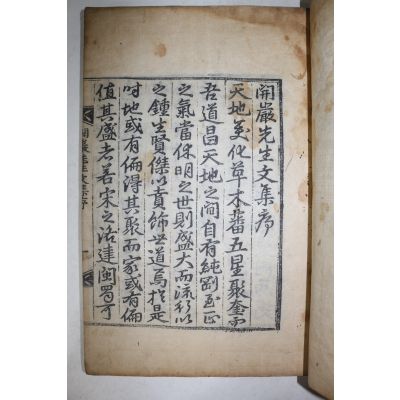 開巖先生文集序
天地変化草木蕃五星聚奎而
吾道昌天地之間自有純剛至正
之氣當休明之世則盛大而流以
之鍾生賢傑以賁飾世道焉於是
時地或有偏得其聚而家或有偏
値其盛者若宋之洛建閩蜀可
開巖先生文集序